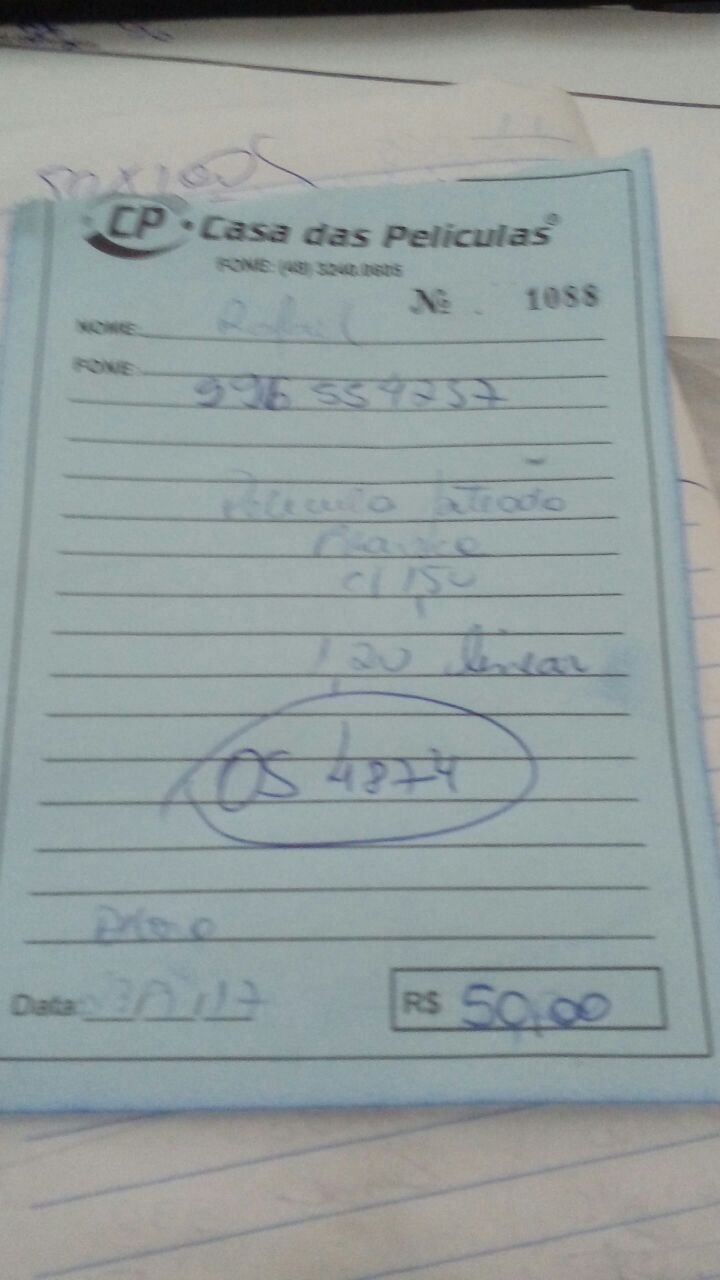 CP • Casa das Películas®
FONE: (48) 3240.0605
Nº 1088
NOME: Rafael
FONE:
996 554257
Película Jateado
Branco
c/ 1,50
1,20 linear
OS 4874
Data / / 17
R$ 50,00